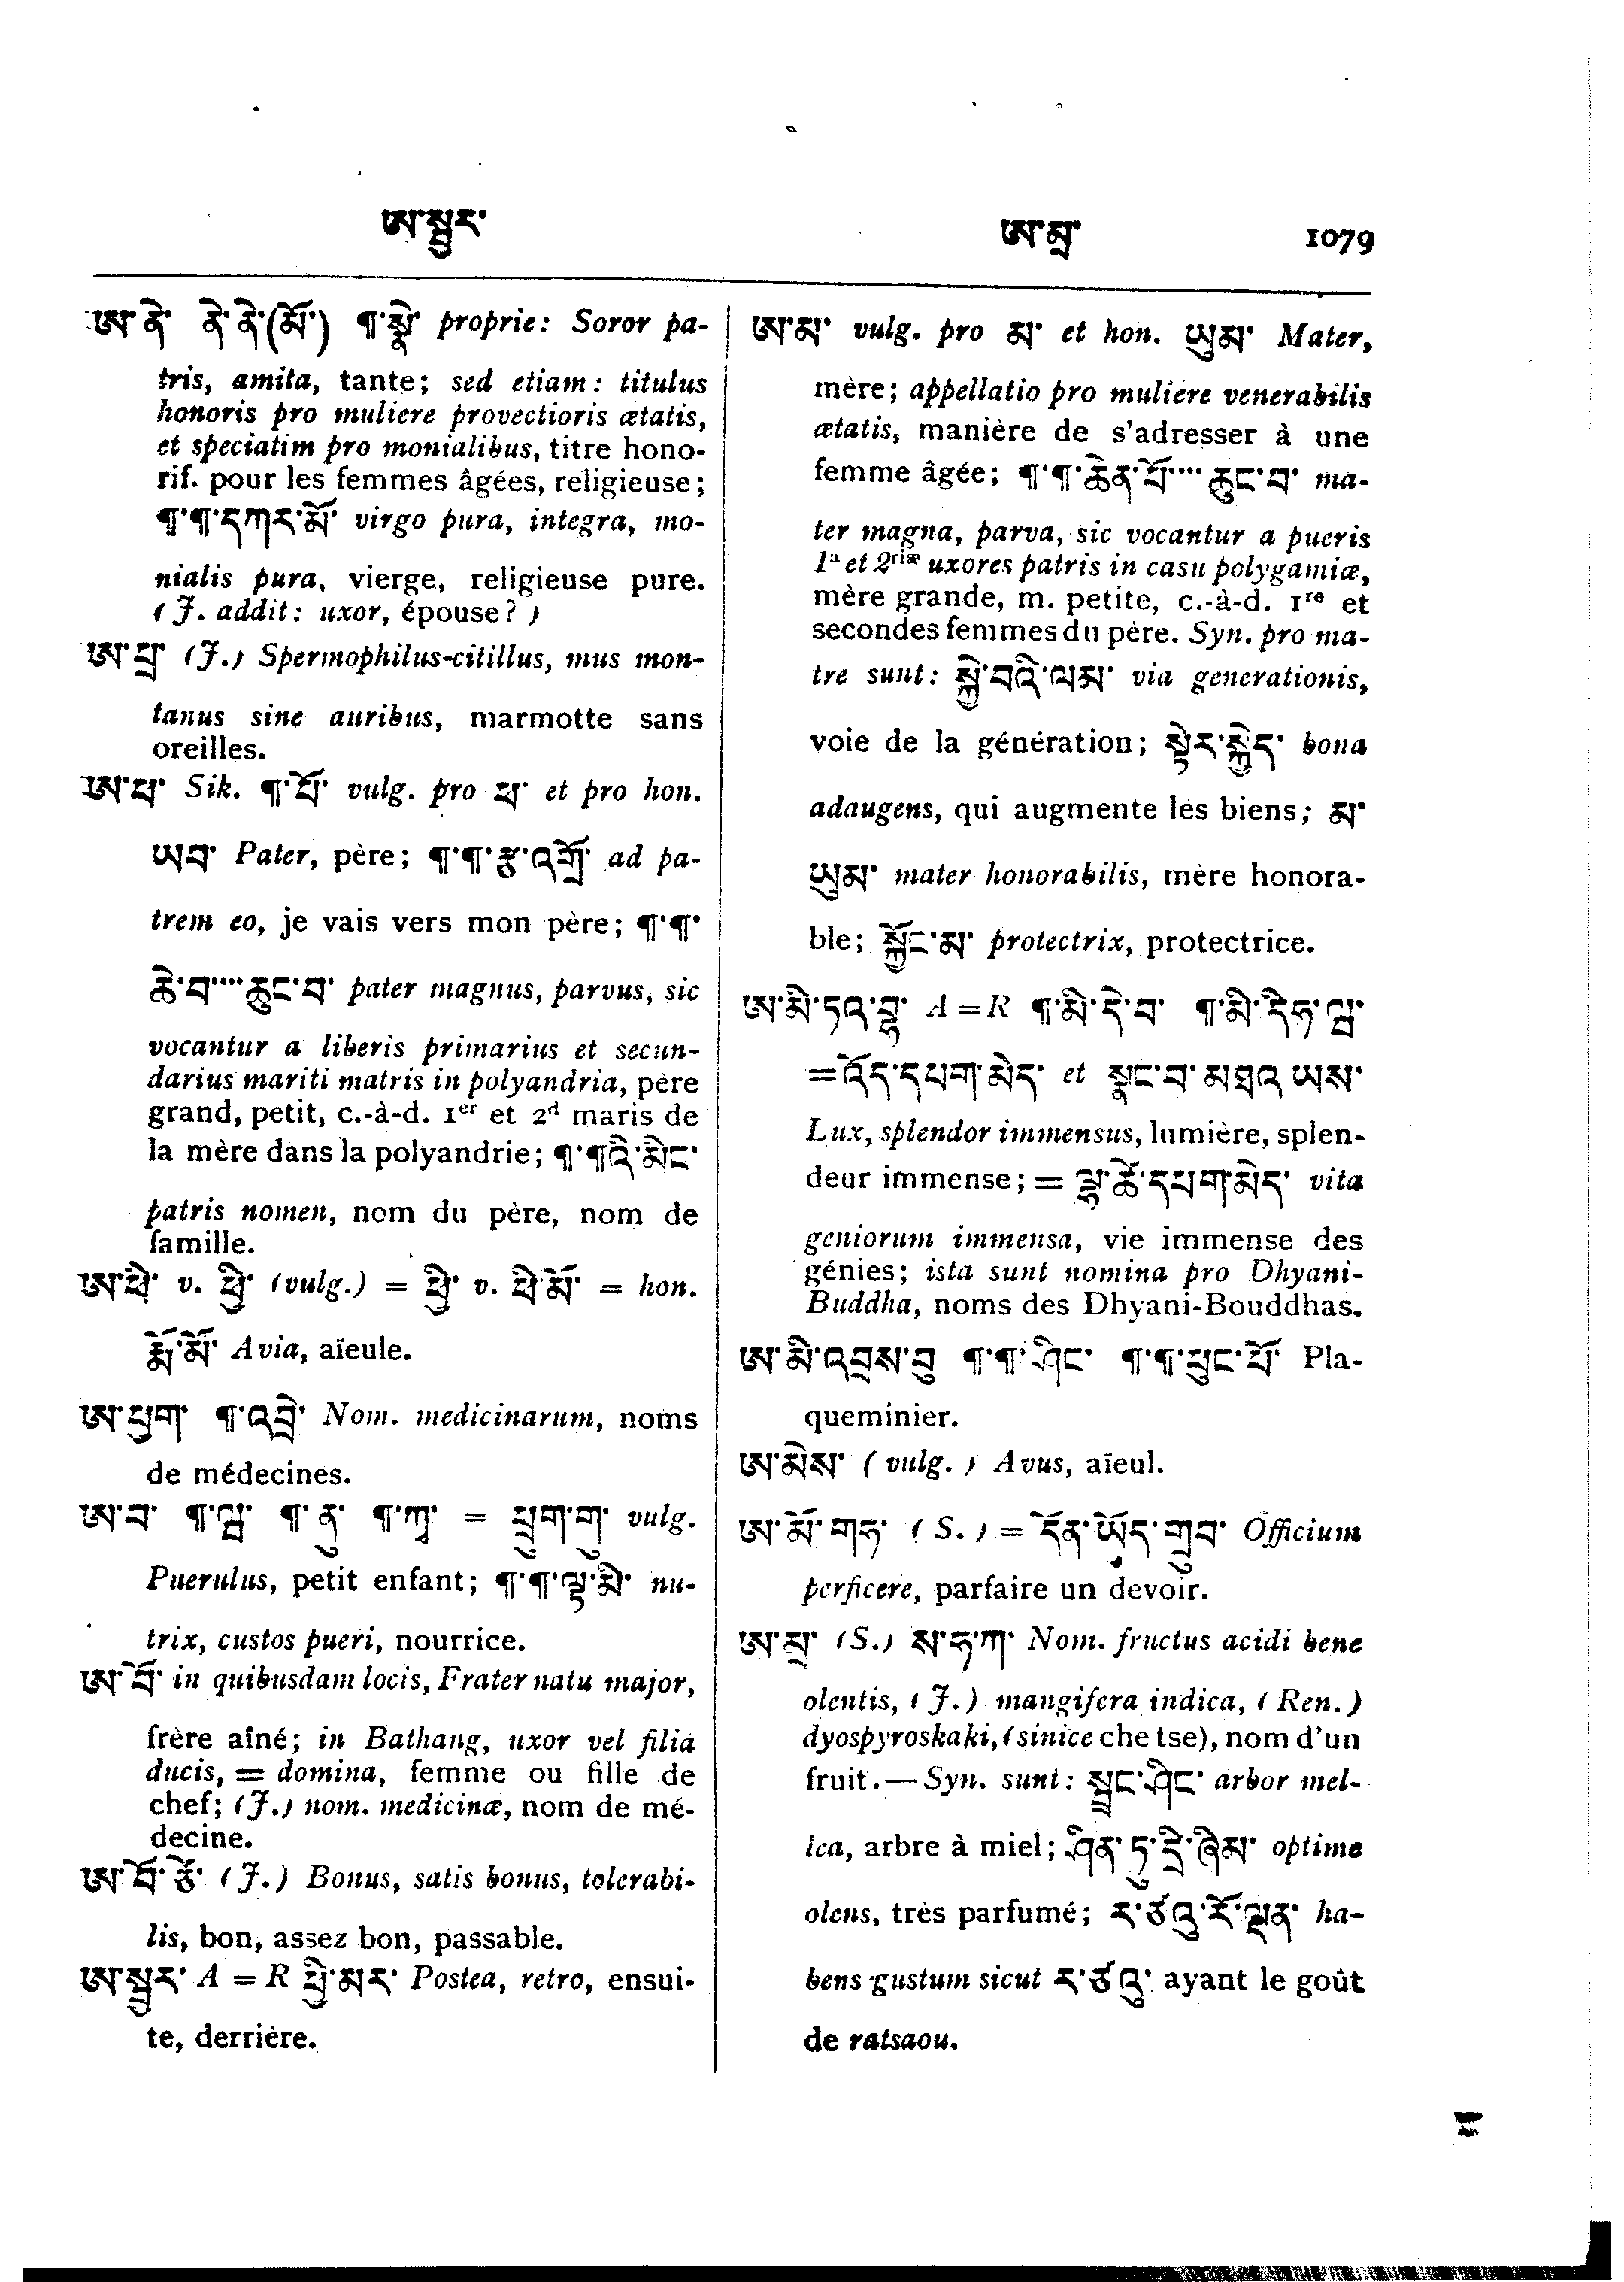 ཨ་སྤྱར་ ཨ་མྲ་ 1079
ཨ་ནེ་ ནེ་ནེ་(མོ་) ¶་སྣེ་ proprie: Soror pa-
tris, amita, tante; sed etiam: titulus
honoris pro muliere provectioris ætatis,
et speciatim pro monialibus, titre hono-
rif. pour les femmes âgées, religieuse;
¶་¶་དཀར་མོ་ virgo pura, integra, mo-
nialis pura, vierge, religieuse pure.
(J. addit: uxor, épouse?)
ཨ་བྲ་ (J.) Spermophilus-citillus, mus mon-
tanus sine auribus, marmotte sans
oreilles.
ཨ་ཕ་ Sik. ¶་པོ་ vulg. pro ཕ་ et pro hon.
ཡབ་ Pater, père; ¶་¶་རྩ་འགྲོ་ ad pa-
trem eo, je vais vers mon père; ¶་¶་
ཆེ་བ་... ཆུང་བ་ pater magnus, parvus, sic
vocantur a liberis primarius et secun-
darius mariti matris in polyandria, père
grand, petit, c.-à-d. 1er et 2d maris de
la mère dans la polyandrie; ¶་¶འི་མེང་
patris nomen, nom du père, nom de
famille.
ཨ་ཕེ་ v. ཕྱི་ (vulg.) = ཕྱི་ v. ཕེ་མོ་ = hon.
རྨོ་མོ་ Avia, aïeule.
ཨ་ཕྱག་ ¶་འབྲེ་ Nom. medicinarum, noms
de médecines.
ཨ་བ་ ¶་ལྦ་ ¶་ནུ་ ¶་ཀྭ་ = ཕྲུག་གུ་ vulg.
Puerulus, petit enfant; ¶་¶་ལྟ་མི་ nu-
trix, custos pueri, nourrice.
ཨ་བོ་ in quibusdam locis, Frater natu major,
frère aîné; in Bathang, uxor vel filia
ducis, = domina, femme ou fille de
chef; (J.) nom. medicinæ, nom de mé-
decine.
ཨ་བོ་ཙོ་ (J.) Bonus, satis bonus, tolerabi-
lis, bon, assez bon, passable.
ཨ་སྤྱར་ A = R ཕྱི་མར་ Postea, retro, ensui-
te, derrière.
ཨ་མ་ vulg. pro མ་ et hon. ཡུམ་ Mater,
mère; appellatio pro muliere venerabilis
ætatis, manière de s'adresser à une
femme âgée; ¶་¶་ཆེན་པོ་... ཆུང་བ་ ma-
ter magna, parva, sic vocantur a pueris
1a et 2riæ uxores patris in casu polygamiæ,
mère grande, m. petite, c.-à-d. 1re et
secondes femmes du père. Syn. pro ma-
tre sunt: སྐྱེ་བའི་ལམ་ via generationis,
voie de la génération; སྟེར་སྐྱེད་ bona
adaugens, qui augmente les biens; མ་
ཡུམ་ mater honorabilis, mère honora-
ble; སྐྱོང་མ་ protectrix, protectrice.
ཨ་མི་ཏའ་བྷ་ A = R ¶་མི་དེ་བ་ ¶་མི་དིཧ་ལྦ་
=འོད་དཔག་མེད་ et སྣང་བ་མཐའ ཡས་
Lux, splendor immensus, lumière, splen-
deur immense; = ལྷ་ཚེ་དཔག་མེད་ vita
geniorum immensa, vie immense des
génies; ista sunt nomina pro Dhyani-
Buddha, noms des Dhyani-Bouddhas.
ཨ་མི་འབྲས་བུ ¶་¶་ཤིང་ ¶་¶་ཕུང་པོ་ Pla-
queminier.
ཨ་མེས་ (vulg.) Avus, aïeul.
ཨ་མོ་གཧ་ (S.) = དོན་ཡོད་གྲུབ་ Officium
perficere, parfaire un devoir.
ཨ་མྲ་ (S.) ས་ཧ་ཀ་ Nom. fructus acidi bene
olentis, (J.) mangifera indica, (Ren.)
dyospyroskaki, (sinice che tse), nom d'un
fruit.—Syn. sunt: སྦྲང་ཤིང་ arbor mel-
lea, arbre à miel; ཤིན་ཏུ་དྲི་ཞིམ་ optime
olens, très parfumé; ར་ཙའུ་རོ་ལྡན་ ha-
bens gustum sicut ར་ཙའུ་ ayant le goût
de ratsaou.